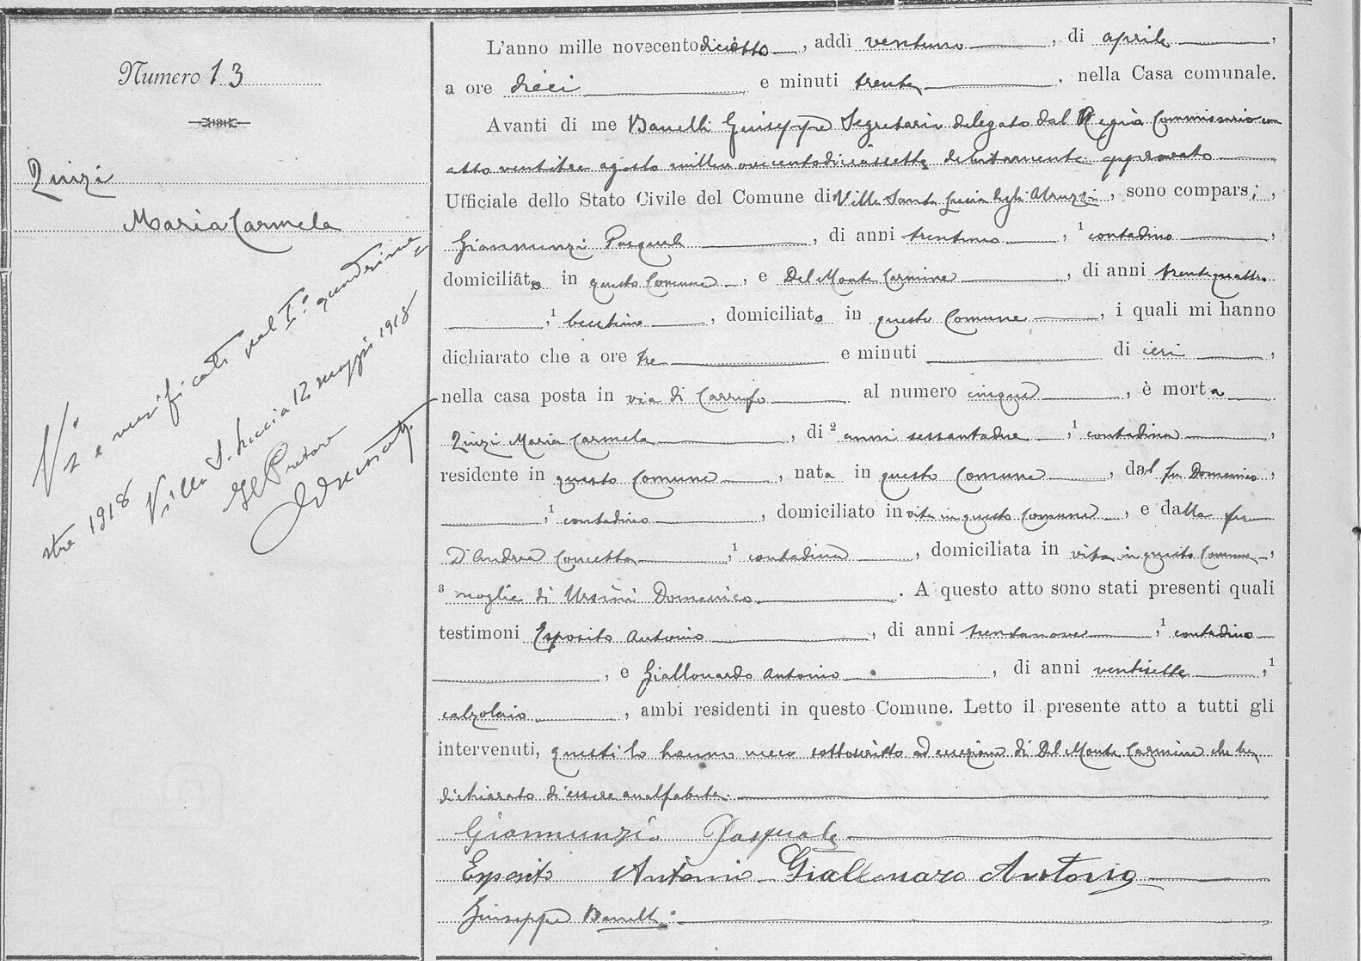 Numero 13
Quinzi
Maria Carmela
Visto e verificato pel I° quadrime
stre 1918
Villa S. Lucia 12 maggio 1918
Il Pretore
L'anno mille novecentodiciotto, addì ventuno, di aprile,
a ore dieci e minuti trenta, nella Casa comunale.
Avanti di me Banelli Giuseppe Segretario delegato dal Regio Commissario con
atto ventitre agosto millenovecentodiciassette debitamente approvato
Ufficiale dello Stato Civile del Comune di Villa Santa Lucia degli Abruzzi, sono comparsi,
Giannunzi Pasquale, di anni trentuno, 1 contadino,
domiciliato in questo Comune, e Del Monte Carmine, di anni trentaquattro
,1 becchino, domiciliato in questo Comune, i quali mi hanno
dichiarato che a ore tre e minuti di ieri,
nella casa posta in via di Carrufo al numero cinque, è morta
Quinzi Maria Carmela, di 2 anni sessantadue,1 contadina,
residente in questo Comune, nata in questo Comune, dal fu Domenico,
,1 contadino, domiciliato in vita in questo Comune, e dalla fu
D'Andrea Concetta,1 contadina, domiciliata in vita in questo Comune,
3 moglie di Ursini Domenico. A questo atto sono stati presenti quali
testimoni Esposito Antonio, di anni trentanove,1 contadino
, e Giallonardo Antonio, di anni ventisette,1
calzolaio, ambi residenti in questo Comune. Letto il presente atto a tutti gli
intervenuti, questi lo hanno meco sottoscritto ad eccezione di Del Monte Carmine che ha
dichiarato di essere analfabeta.
Giannunzi Pasquale
Esposito Antonio Giallonardo Antonio
Giuseppe Banelli